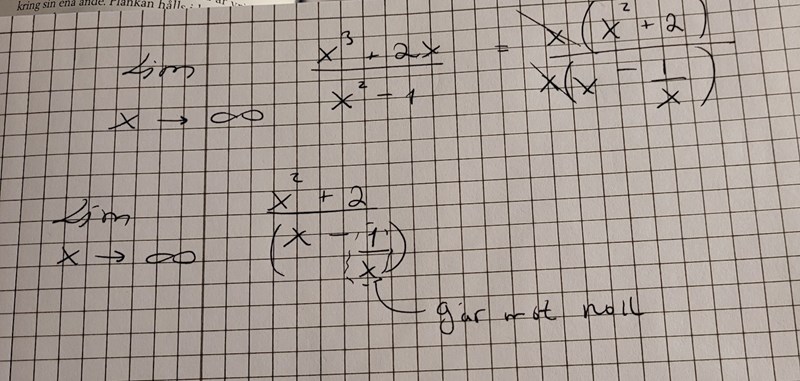 kring sin ena ände. Plankan hålls
lim x → ∞ (x³ + 2x)/(x² - 1) = x(x² + 2)/x(x - 1/x)
lim x → ∞ (x² + 2)/(x - 1/x)
går mot noll